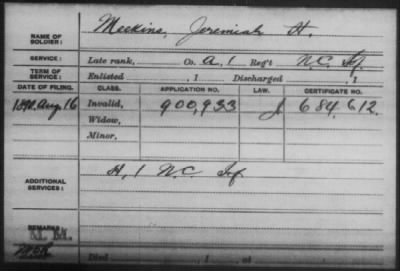 NAME OF SOLDIER: Meekins, Jeremiah H.
SERVICE: Late rank, Co. A, 1 Reg't N.C. Inf.
TERM OF SERVICE: Enlisted , 1 Discharged , 1
DATE OF FILING. CLASS. APPLICATION NO. LAW. CERTIFICATE NO.
1890, Aug 16 Invalid, 900,933 J 684,612.
Widow,
Minor,
ADDITIONAL SERVICES: H, 1 N.C. Inf
REMARKS:
N. M.
Died , 1 , at